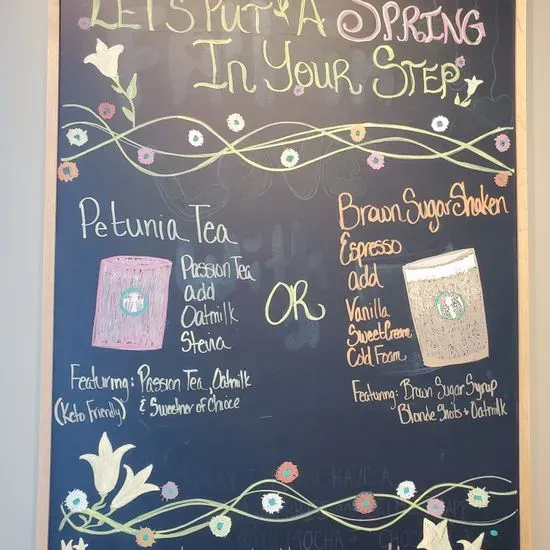 LET'S PUT A SPRING
IN YOUR STEP
Petunia Tea
Passion Tea
add
Oatmilk
Stevia
Featuring: Passion Tea, Oatmilk
(Keto Friendly) & Sweetner of Choice
OR
Brown Sugar Shaken
Espresso
add
Vanilla
Sweet Cream
Cold Foam
Featuring: Brown Sugar Syrup
Blonde Shots & Oatmilk